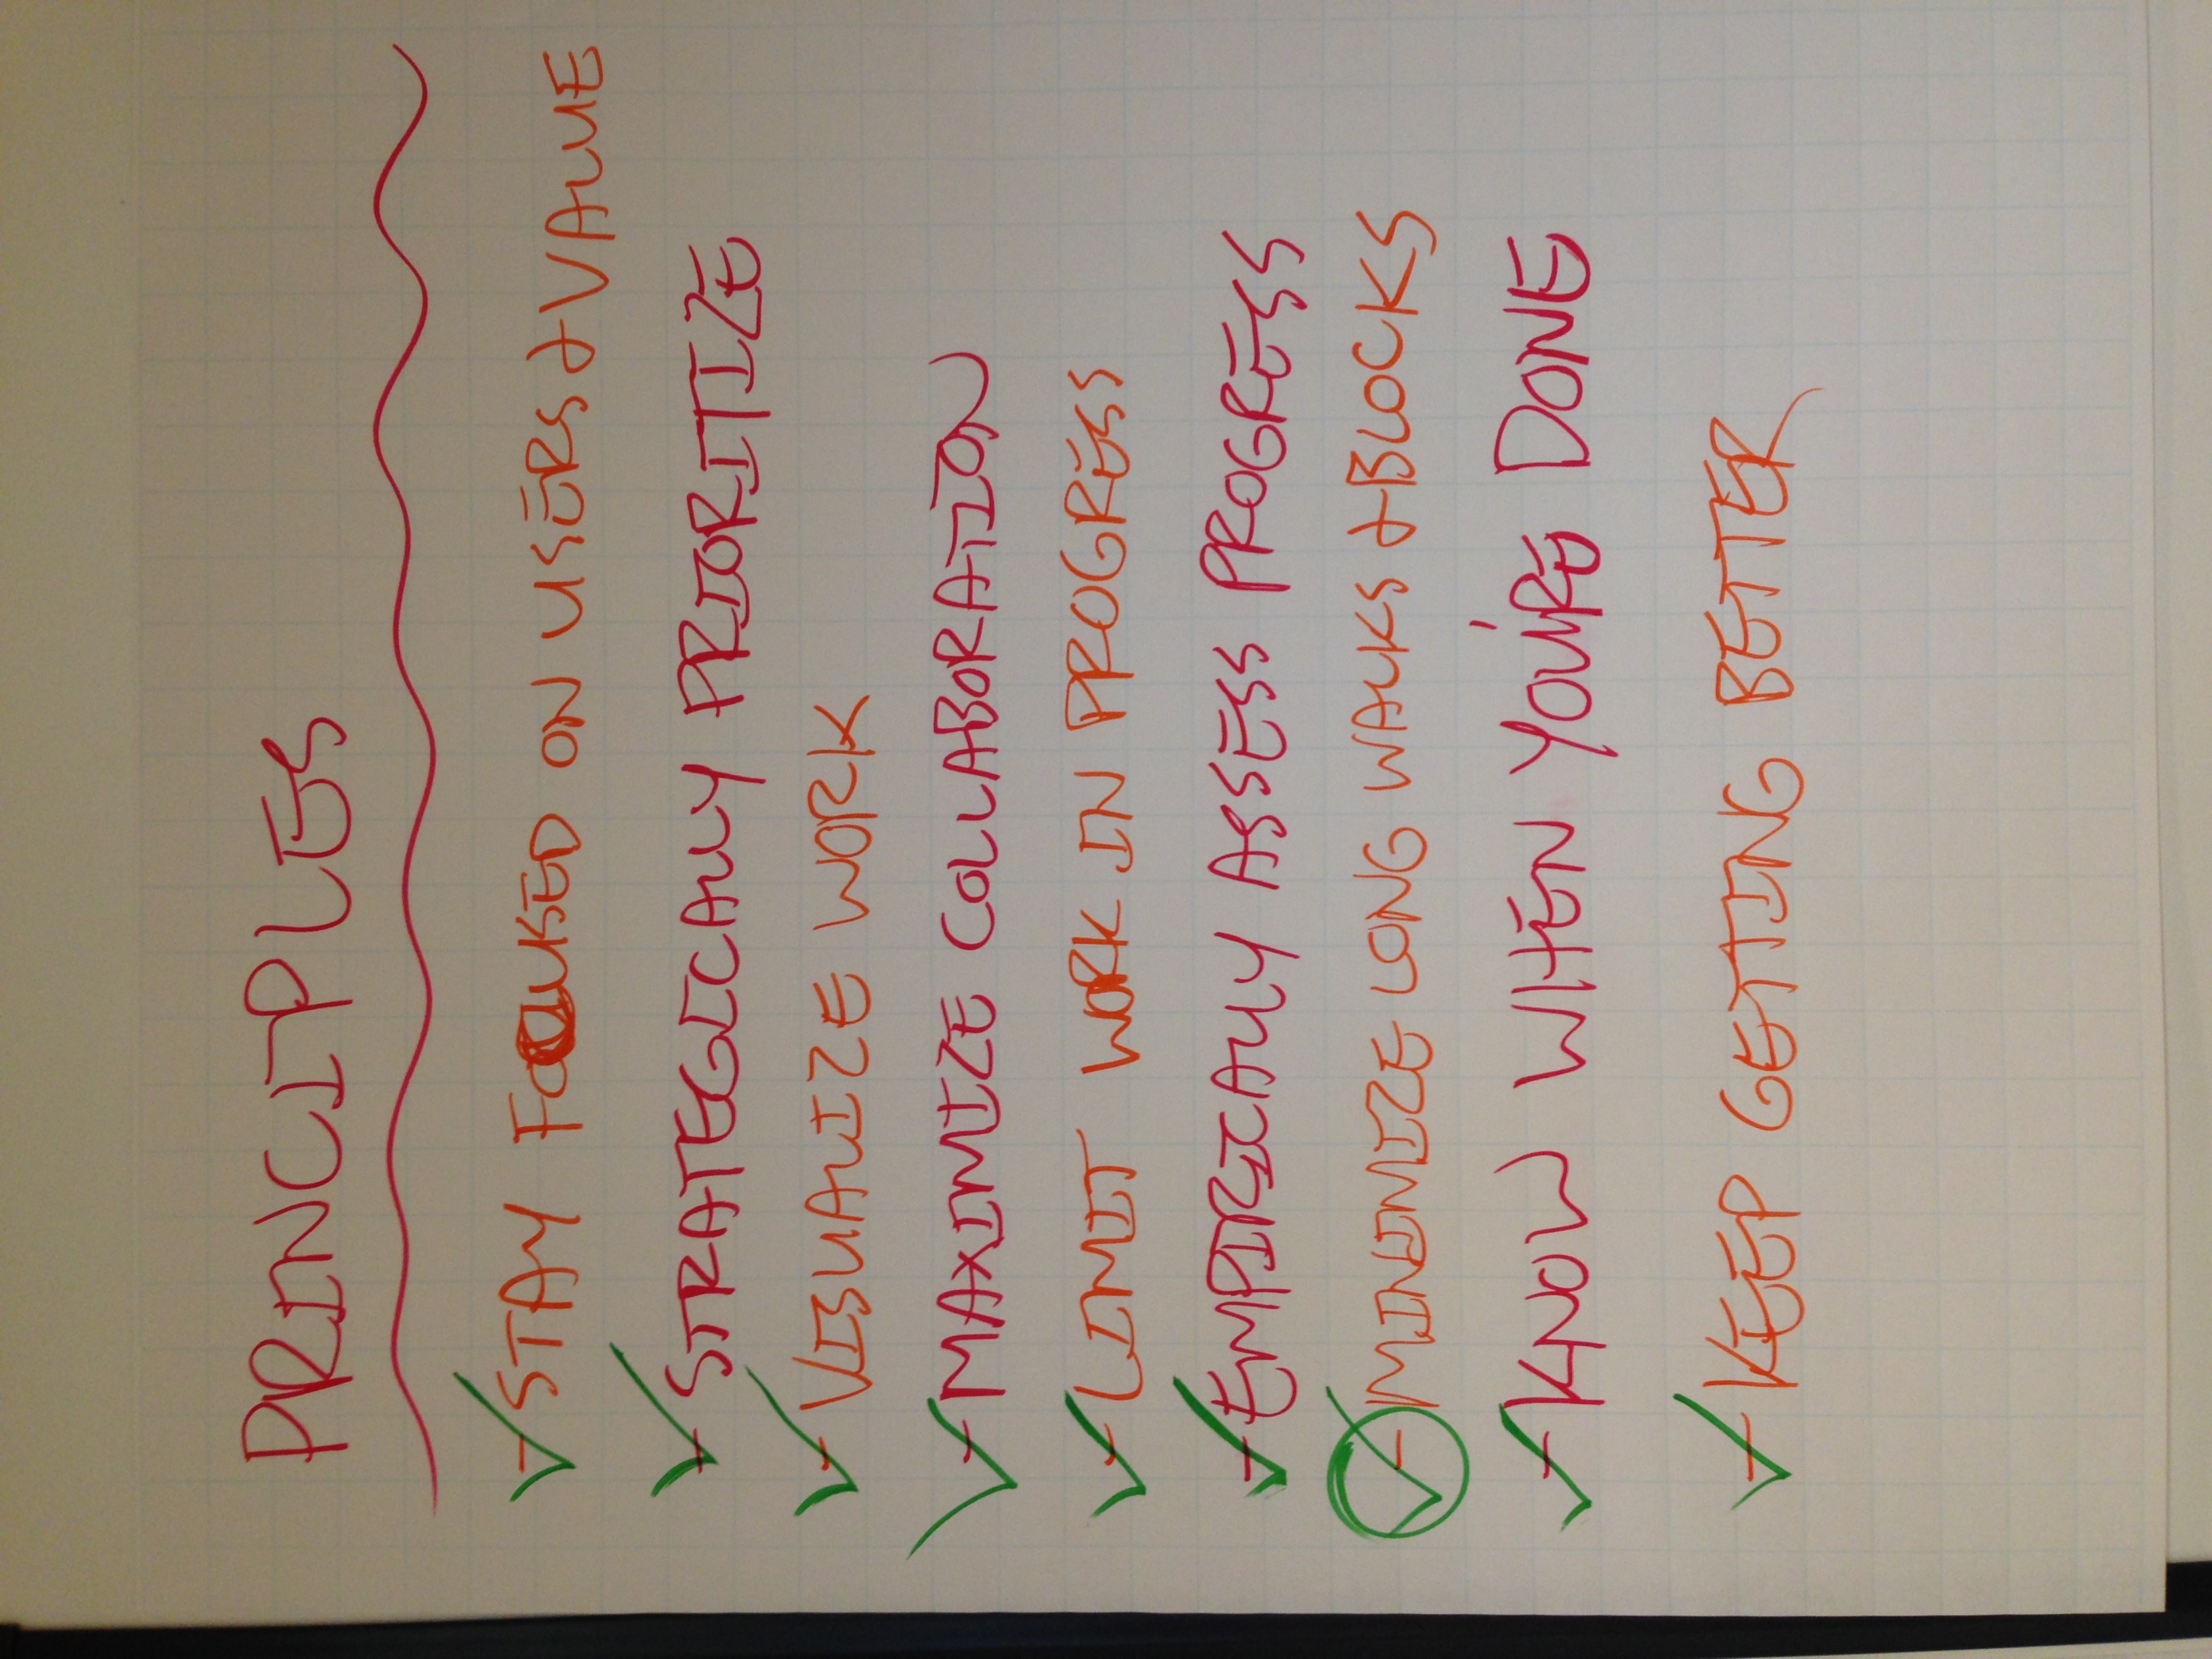 PRINCIPLES
- STAY FOCUSED ON USERS & VALUE
- STRATEGICALLY PRIORITIZE
- VISUALIZE WORK
- MAXIMIZE COLLABORATION
- LIMIT WORK IN PROGRESS
- EMPIRICALLY ASSESS PROGRESS
- MINIMIZE LONG WALKS & BLOCKS
- KNOW WHEN YOU'RE DONE
- KEEP GETTING BETTER